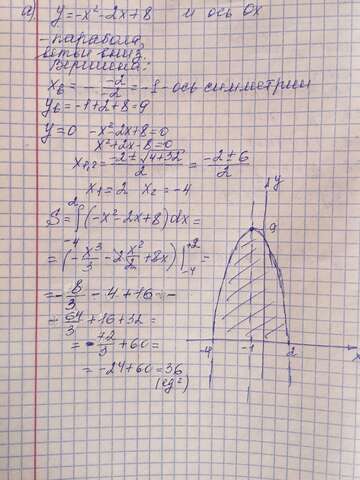 а) y=-x²-2x+8 и ось Ox
- парабола,
ветви вниз.
Вершина:
x_в = - -2/-2 = -1 - ось симметрии
y_в = -1+2+8=9
y=0 -x²-2x+8=0
x²+2x-8=0
x₁,₂ = -2±√4+32/2 = -2±6/2
x₁=2 x₂=-4
S = ∫₋₄² (-x²-2x+8)dx =
= (-x³/3 - 2x²/2 + 8x) |₋₄⁺² =
= - 8/3 - 4 + 16 -
- 64/3 + 16 + 32 =
= - 72/3 + 60 =
= -24+60=36
(ед²)
y
9
-4 -1 2 x